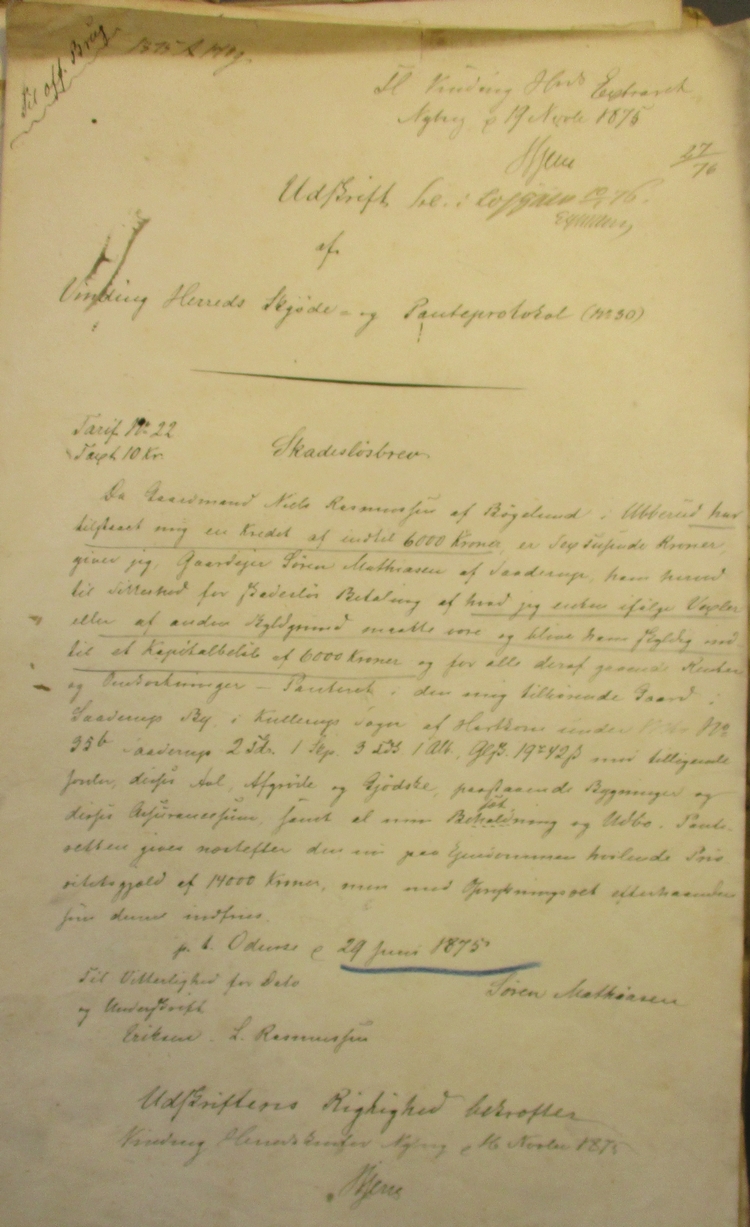 Til off. Brug
Til Vinding Herreds Extraret
Nyborg d 19 Novbr 1875
Hjerre
27/76
Udskrift
af
Vinding Herreds Skjøde- og Panteprotokol (No 30)
Tarif No 22
Taxt 10 Kr.
Skadesløsbrev.
Da Gaardmand Niels Rasmussen af Bøgelund i Ubberud har
tilstaaet mig en Kredit af indtil 6000 Kroner, er Sex Tusinde Kroner,
giver jeg, Gaardejer Søren Mathiasen af Saaderup, ham herved
til Sikkerhed for skadesløs Betaling af hvad jeg enten ifølge Vexler
eller af anden Skyldgrund maatte være og blive ham skyldig ind-
til et Kapitalbeløb af 6000 Kroner og for alle deraf gaaende Renter
og Omkostninger – Panteret i den mig tilhørende Gaard i
Saaderup By i Kullerup Sogn af Hartkorn under No
35b Saaderup 2 Tdr. 1 Skp. 3 Fdk 1 Alb., Glsk. 19 42 ß med tilliggende
Jorder, disses Avl, Afgrøde og Gjødske, paastaaende Bygninger og
disses Assurancesum, samt al min Besætning og Udbo. Pante-
retten gives næstefter den nu paa Ejendommen hvilende Prio
ritetsgjæld af 14000 Kroner, men med Oprykningsret efterhaanden
som denne indfries.
p. t. Odense d 29 Juni 1875
Til Vitterlighed for Dato
og Underskrift
Søren Mathiasen
Eriksen. L. Rasmussen
Udskriftens Rigtighed bekræfter
Vinding Herredskontor Nyborg d 16 Novbr 1875
Hjerre